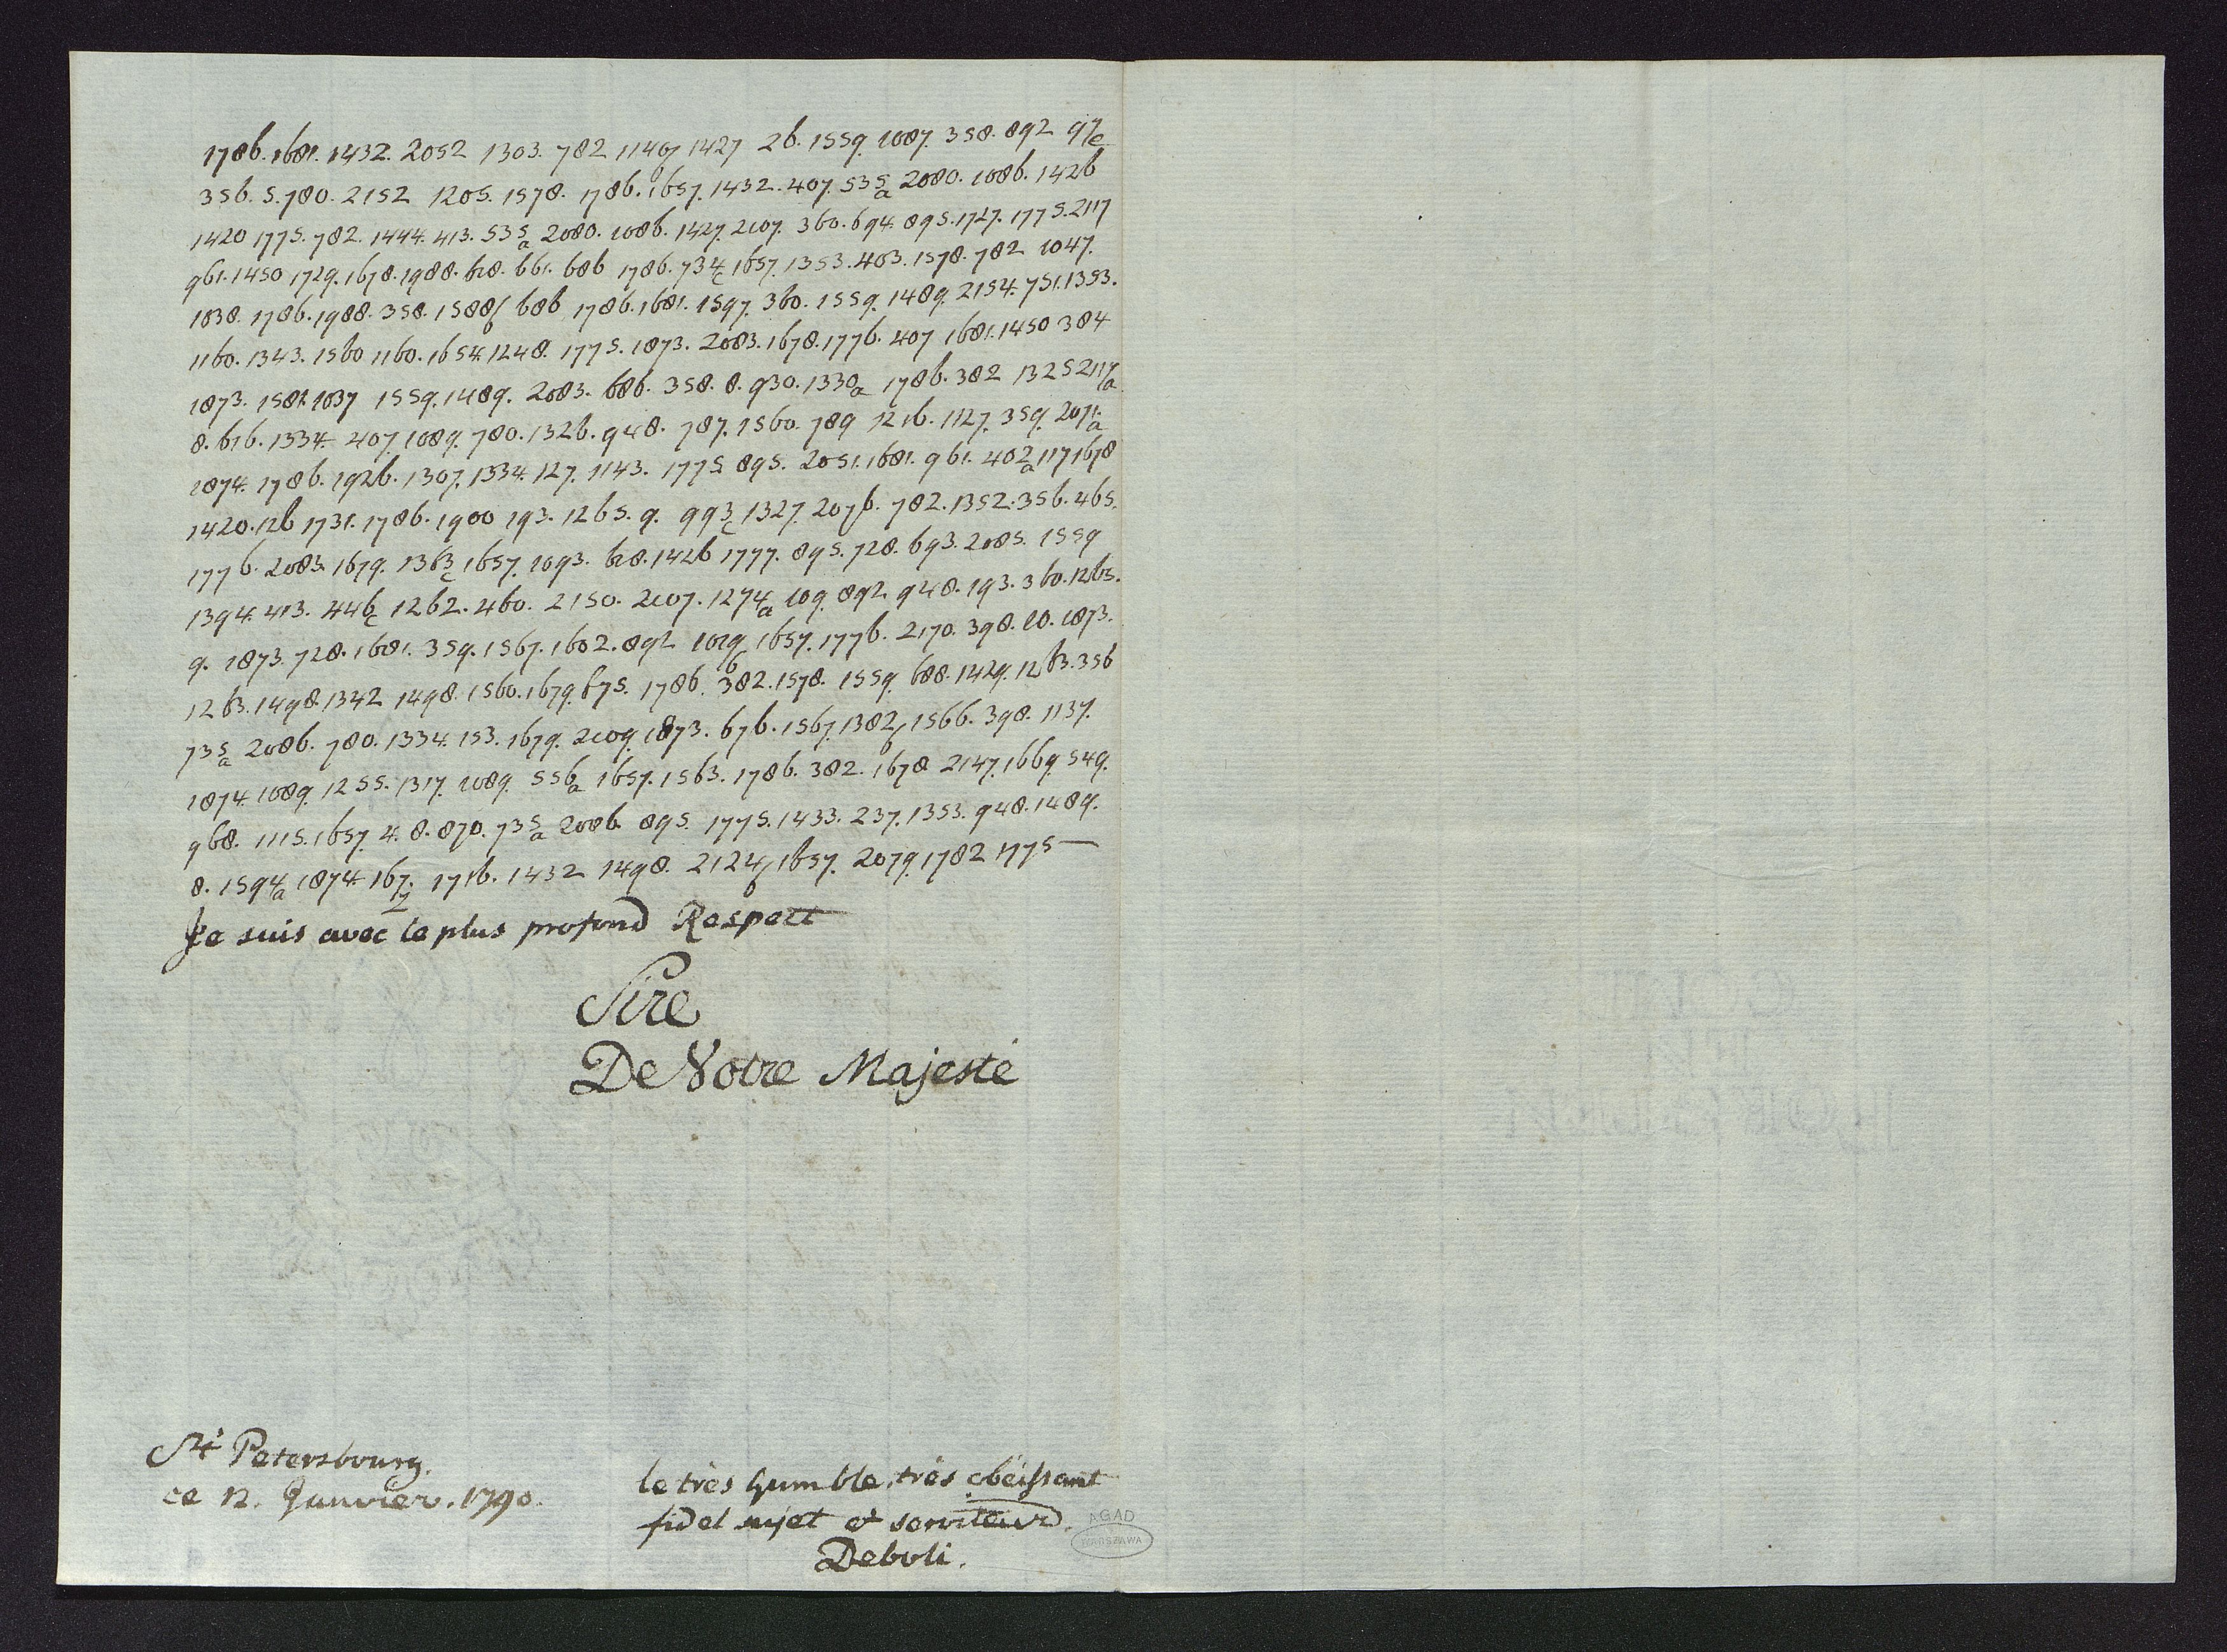 1786. 1681. 1432. 2052 1303. 782 1140b 1427 26. 1559. 1087. 358. 892 97c
356. 5. 780. 2152 1205. 1578. 1786. 1657. 1432. 407. 535a 2080. 1086. 1426
1420 1775. 782. 1444. 413. 535a 2080. 1086. 1427. 2107. 360. 694. 895. 1727. 1775. 2117
961. 1450 1729. 1678. 1988. 618. 661. 686 1786. 734c 1657. 1353. 403. 1578. 782 1047.
1038. 1786. 1988. 358. 1588b 686 1786. 1681. 1597. 360. 1559. 1489. 2154. 751. 1353.
1160. 1343. 1560 1160. 1654. 1248. 1775. 1873. 2083. 1678. 1776. 407 1681. 1450 384
1873. 1581. 1037 1559. 1489. 2083. 686. 358. 8. 930. 1330a 1786. 382 1325 2117a
8. 616. 1334. 407. 1089. 780. 1326. 948. 787. 1560. 789 1216. 1127. 359. 2071a
1874. 1786. 1926. 1307. 1334. 127. 1143. 1775. 895. 2051. 1681. 961. 402a 117 1678
1420. 126 1731. 1786. 1900 193. 1265. 9. 993c 1327. 2076. 782. 1352. 356. 465.
1776. 2083. 1679. 1363c 1657. 1093. 618. 1426 1777. 895. 728. 693. 2085. 1559
1394. 413. 446c 1262. 460. 2150. 2107. 1274a 109. 892 948. 193. 360. 1265.
9. 1873. 728. 1681. 359. 1567. 1602. 892 1019b 1657. 1776. 2170. 398. 10. 1873.
1263. 1498. 1342 1498. 1560. 1679. 675. 1786. 382. 1578. 1559. 688. 1429. 1263. 356
735a 2086. 780. 1334. 153. 1679. 2109. 1873. 676. 1567. 1382b 1566. 398. 1137.
1874. 1089. 1255. 1317. 1089. 556a 1657. 1563. 1786. 382. 1678 2147. 1669. 549.
968. 1115. 1657. 4. 8. 870. 735a 2086. 895. 1775. 1433. 237. 1353. 948. 1489.
8. 1594a 1874. 167. 1716. 1432 1498. 2124b 1657. 2079. 1782 1775—
Je suis avec le plus profond Respect
Sire
De Votre Majesté
St Petersbourg.
ce 12. Janvier. 1790.
le très humble, très obéissant
fidel sujet et serviteur.
Deboli.
AGAD
WARSZAWA